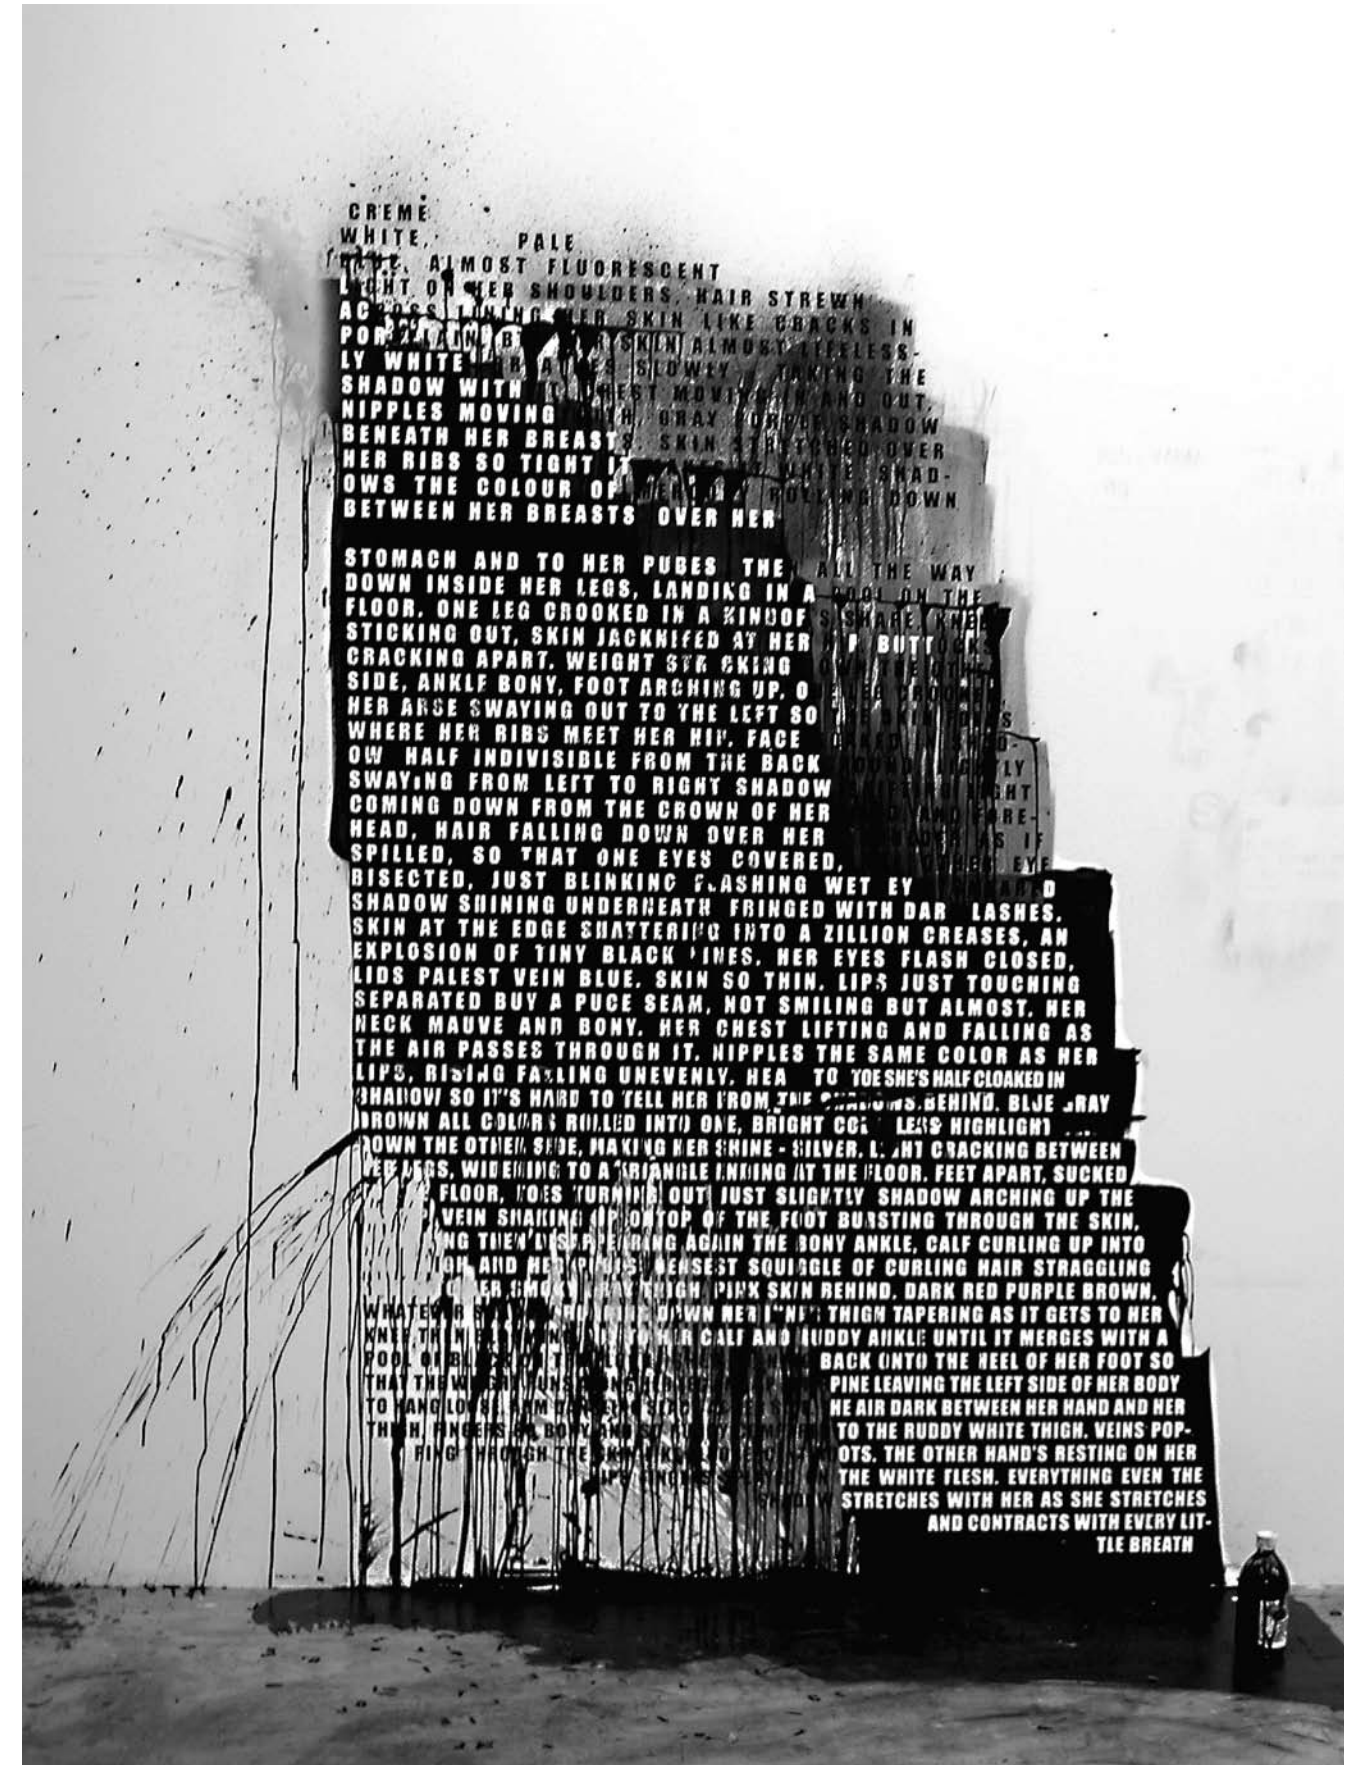 CREME
WHITE, PALE
BLUE, ALMOST FLUORESCENT
LIGHT ON HER SHOULDERS, HAIR STREWN
ACROSS LINING HER SKIN LIKE CRACKS IN
PORCELAIN, SKIN ALMOST LIFELESS-
LY WHITE SLOWLY TAKING THE
SHADOW WITH IT, CHEST MOVING IN AND OUT,
NIPPLES MOVING WITH, GRAY PURPLE SHADOW
BENEATH HER BREASTS, SKIN STRETCHED OVER
HER RIBS SO TIGHT IT WHITE SHAD-
OWS THE COLOUR OF MERCURY ROLLING DOWN
BETWEEN HER BREASTS OVER HER
STOMACH AND TO HER PUBES THEN ALL THE WAY
DOWN INSIDE HER LEGS, LANDING IN A POOL ON THE
FLOOR, ONE LEG CROOKED IN A KINDOF S SHAPE, KNEE
STICKING OUT, SKIN JACKNIFED AT HER HIP BUTTOCKS
CRACKING APART, WEIGHT DOWN THE OTHER
SIDE, ANKLE BONY, FOOT ARCHING UP, ONE LEG CROOKED,
HER ARSE SWAYING OUT TO THE LEFT SO THE SKIN FOLDS
WHERE HER RIBS MEET HER HIP, FACE
OW HALF INDIVISIBLE FROM THE BACK SLIGHTLY
SWAYING FROM LEFT TO RIGHT SHADOW LIGHT
COMING DOWN FROM THE CROWN OF HER HEAD AND FORE-
HEAD, HAIR FALLING DOWN OVER HER AS IF
SPILLED, SO THAT ONE EYES COVERED, OTHER EYE
BISECTED, JUST BLINKING FLASHING WET EY
SHADOW SHINING UNDERNEATH FRINGED WITH DAR LASHES,
SKIN AT THE EDGE SHATTERING INTO A ZILLION CREASES, AN
EXPLOSION OF TINY BLACK LINES, HER EYES FLASH CLOSED,
LIDS PALEST VEIN BLUE, SKIN SO THIN, LIPS JUST TOUCHING
SEPARATED BUY A PUCE SEAM, NOT SMILING BUT ALMOST, HER
NECK MAUVE AND BONY, HER CHEST LIFTING AND FALLING AS
THE AIR PASSES THROUGH IT, NIPPLES THE SAME COLOR AS HER
LIPS, RISING FALLING UNEVENLY, HEA TO TOE SHE'S HALF CLOAKED IN
SHADOW SO IT'S HARD TO TELL HER FROM THE SHADOWS BEHIND, BLUE GRAY
BROWN ALL COLORS ROLLED INTO ONE, BRIGHT HIGHLIGHT
DOWN THE OTHER SIDE, MAKING HER SHINE - SILVER, LIGHT CRACKING BETWEEN
HER LEGS, WIDENING TO A TRIANGLE ENDING AT THE FLOOR, FEET APART, SUCKED
FLOOR, TOES TURNING OUT JUST SLIGHTLY SHADOW ARCHING UP THE
VEIN SNAKING UP ONTOP OF THE FOOT BURSTING THROUGH THE SKIN,
THEN DISAPPEARING AGAIN THE BONY ANKLE, CALF CURLING UP INTO
AND HER DENSEST SQUIGGLE OF CURLING HAIR STRAGGLING
THIGH, PINK SKIN BEHIND, DARK RED PURPLE BROWN,
WHATEVER DOWN HER INNER THIGH TAPERING AS IT GETS TO HER
KNEE THEN BLOOMING HER CALF AND RUDDY ANKLE UNTIL IT MERGES WITH A
POOL OF BLACK ON THE BACK ONTO THE HEEL OF HER FOOT SO
THAT THE WEIGHT RUNS PINE LEAVING THE LEFT SIDE OF HER BODY
TO HANG LOOSE, ARM HE AIR DARK BETWEEN HER HAND AND HER
THIGH, FINGERS BONY AND TO THE RUDDY WHITE THIGH, VEINS POP-
PING THROUGH THE SKIN LIKE OTS, THE OTHER HAND'S RESTING ON HER
THE WHITE FLESH, EVERYTHING EVEN THE
SHADOW STRETCHES WITH HER AS SHE STRETCHES
AND CONTRACTS WITH EVERY LIT-
TLE BREATH